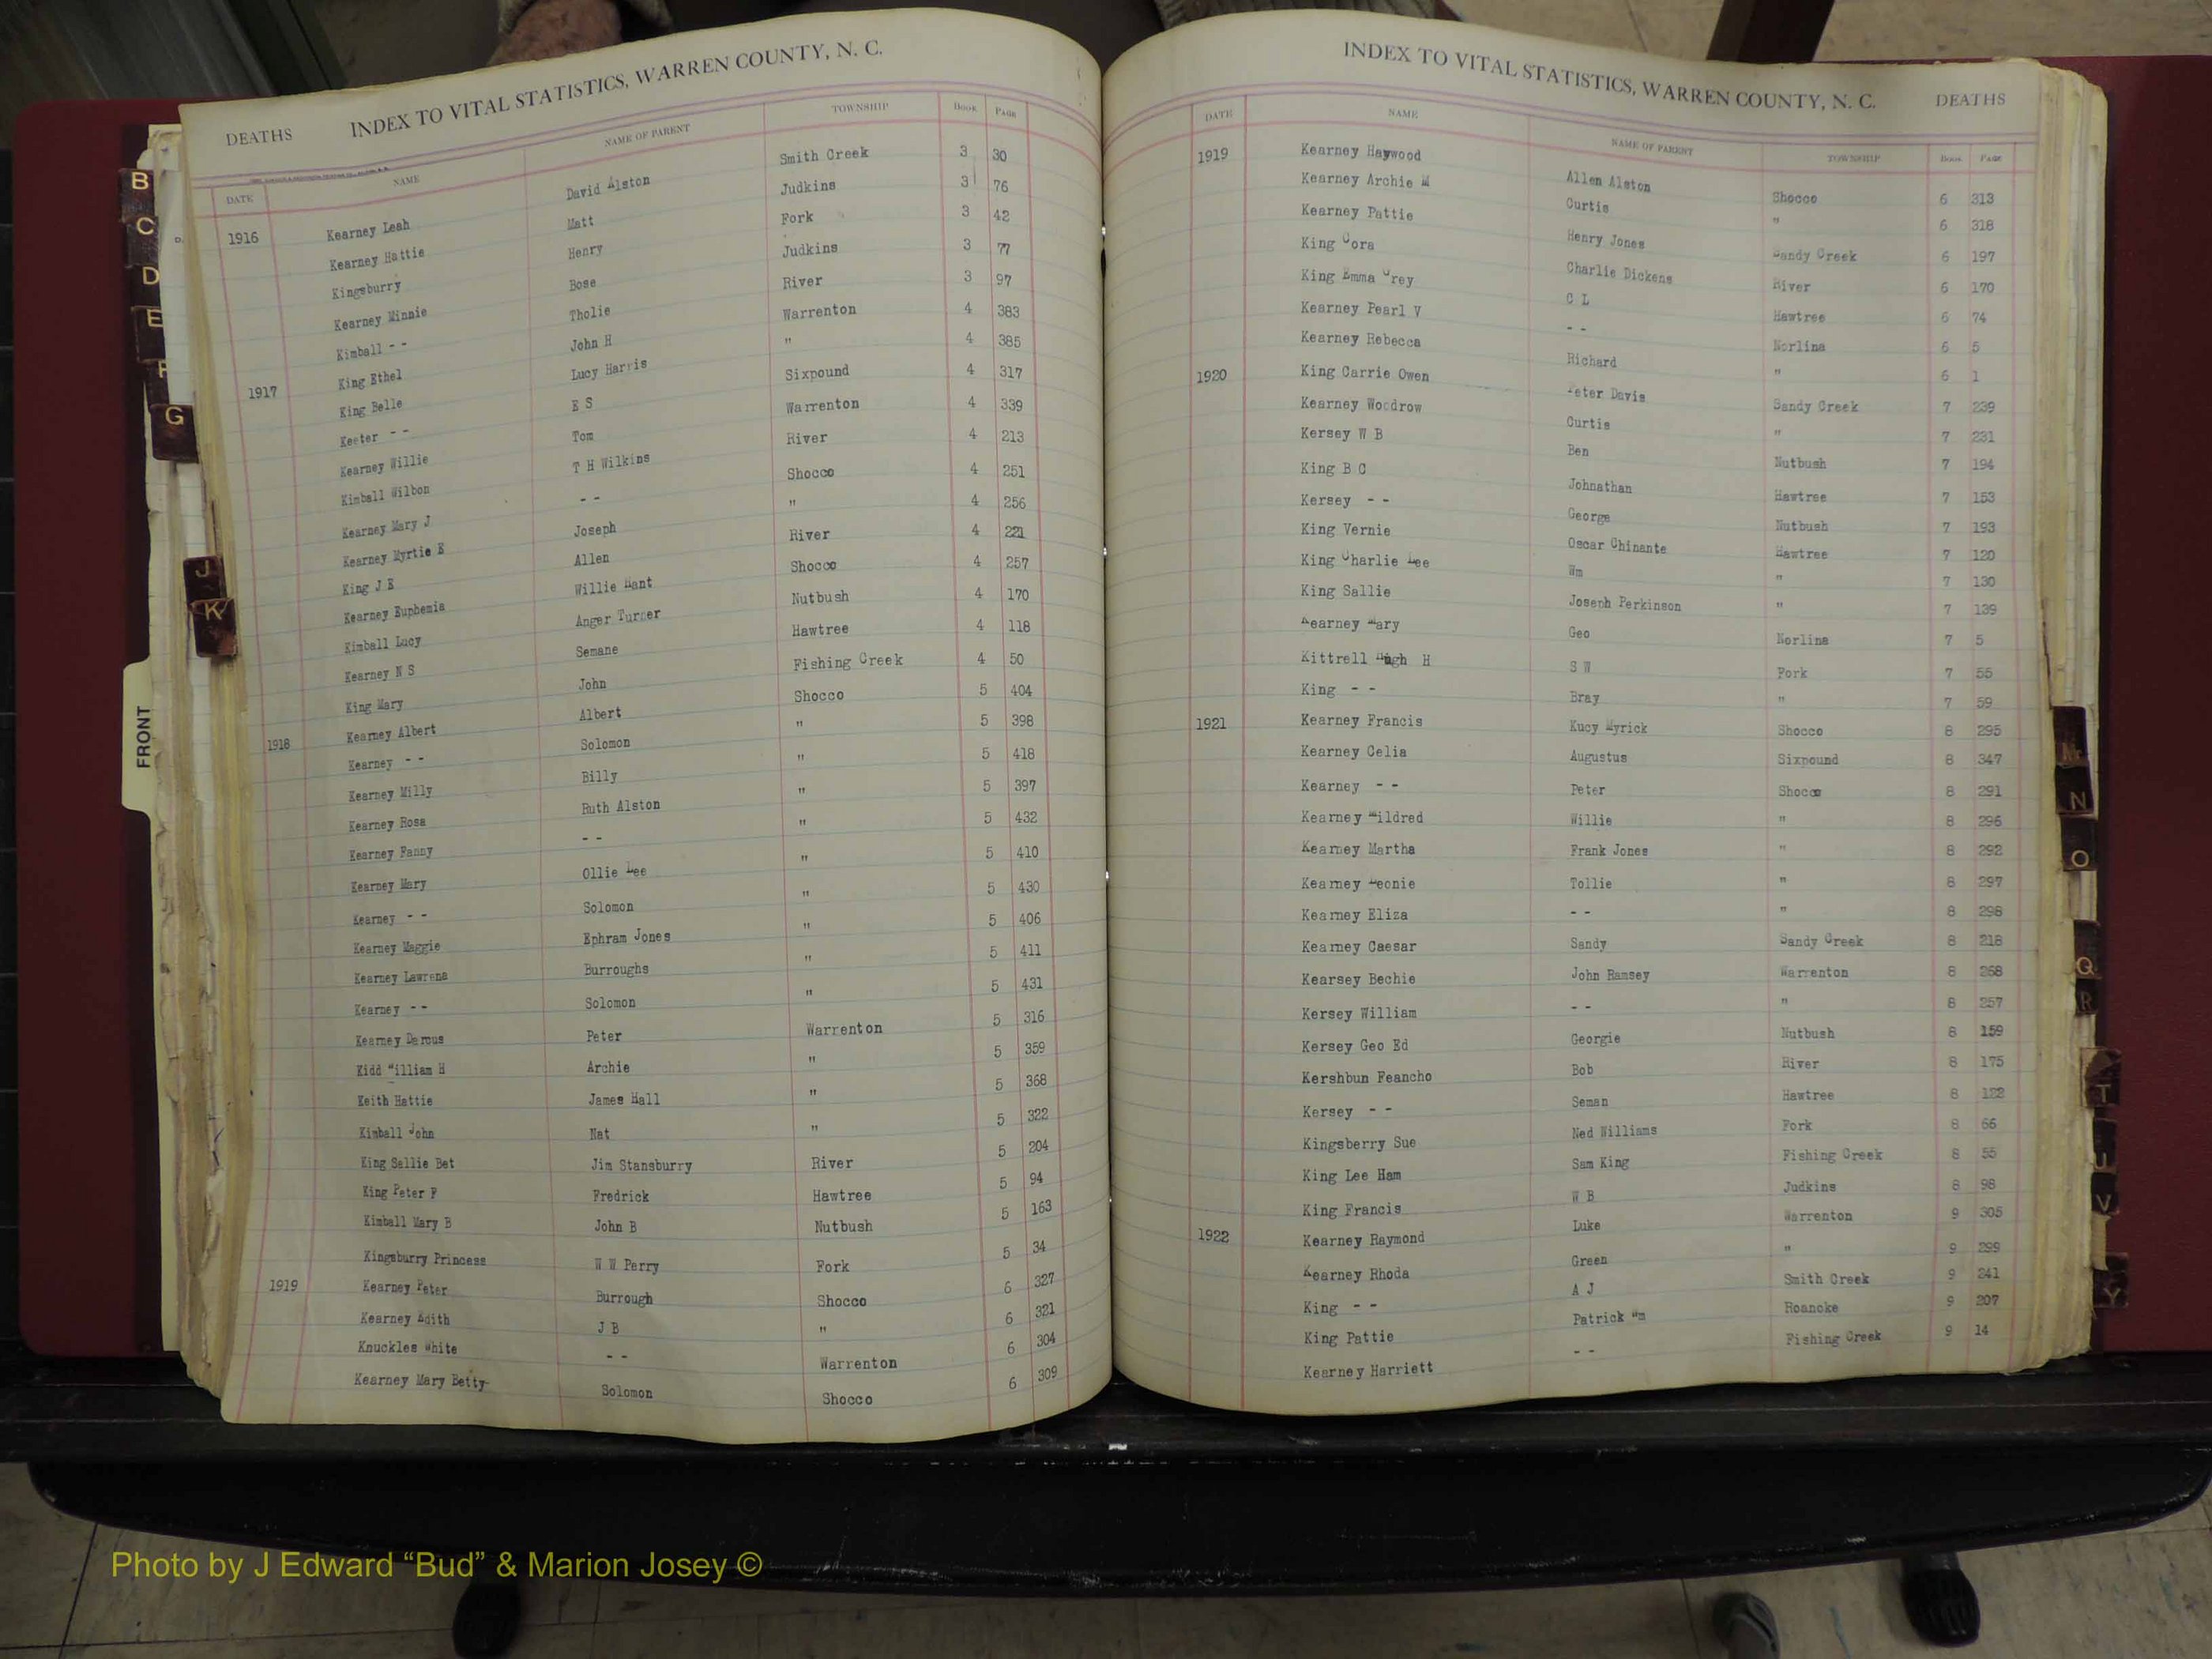 DEATHS INDEX TO VITAL STATISTICS, WARREN COUNTY, N. C.
DATE NAME NAME OF PARENT TOWNSHIP BOOK PAGE
1916 Kearney Leah David Alston Smith Creek 3 30
Kearney Hattie Matt Judkins 3 76
Kingsburry Henry Fork 3 42
Kearney Minnie Bose Judkins 3 77
Kimball - - Tholie River 3 97
1917 King Ethel John H Warrenton 4 383
King Belle Lucy Harris " 4 385
Keeter - - E S Sixpound 4 317
Kearney Willie Tom Warrenton 4 339
Kimball Wilbon T H Wilkins River 4 213
Kearney Mary J - - Shocco 4 251
Kearney Myrtie E Joseph " 4 256
King J E Allen River 4 221
Kearney Euphemia Willie Hant Shocco 4 257
Kimball Lucy Anger Turner Nutbush 4 170
Kearney N S Semane Hawtree 4 118
King Mary John Fishing Creek 4 50
1918 Kearney Albert Albert Shocco 5 404
Kearney - - Solomon " 5 398
Kearney Milly Billy " 5 418
Kearney Rosa Ruth Alston " 5 397
Kearney Fanny - - " 5 432
Kearney Mary Ollie Lee " 5 410
Kearney - - Solomon " 5 430
Kearney Maggie Ephram Jones " 5 406
Kearney Lawrena Burroughs " 5 411
Kearney - - Solomon " 5 431
Kearney Darcus Peter Warrenton 5 316
Kidd William H Archie " 5 359
Keith Hattie James Hall " 5 368
Kimball John Nat " 5 322
King Sallie Bet Jim Stansburry River 5 204
King Peter F Fredrick Hawtree 5 94
Kimball Mary B John B Nutbush 5 163
Kingsburry Princess W W Perry Fork 5 34
1919 Kearney Peter Burrough Shocco 6 327
Kearney Edith J B " 6 321
Knuckles White - - Warrenton 6 304
Kearney Mary Betty Solomon Shocco 6 309
INDEX TO VITAL STATISTICS, WARREN COUNTY, N. C. DEATHS
DATE NAME NAME OF PARENT TOWNSHIP BOOK PAGE
1919 Kearney Haywood Allen Alston Shocco 6 313
Kearney Archie M Curtis " 6 318
Kearney Pattie Henry Jones Sandy Creek 6 197
King Cora Charlie Dickens River 6 170
King Emma Grey C L Hawtree 6 74
Kearney Pearl V - - Norlina 6 5
Kearney Rebecca Richard " 6 1
1920 King Carrie Owen Peter Davis Sandy Creek 7 239
Kearney Woodrow Curtis " 7 231
Kersey W B Ben Nutbush 7 194
King B C Johnathan Hawtree 7 153
Kersey - - George Nutbush 7 193
King Vernie Oscar Chinante Hawtree 7 120
King Charlie Lee Wm " 7 130
King Sallie Joseph Perkinson " 7 139
Kearney Mary Geo Norlina 7 5
Kittrell Hugh H S W Fork 7 55
King - - Bray " 7 59
1921 Kearney Francis Kucy Myrick Shocco 8 295
Kearney Celia Augustus Sixpound 8 347
Kearney - - Peter Shocco 8 291
Kearney Mildred Willie " 8 296
Kearney Martha Frank Jones " 8 292
Kearney Leonie Tollie " 8 297
Kearney Eliza - - " 8 298
Kearney Caesar Sandy Sandy Creek 8 218
Kearsey Bechie John Ramsey Warrenton 8 268
Kersey William - - " 8 257
Kersey Geo Ed Georgie Nutbush 8 159
Kershbun Feancho Bob River 8 175
Kersey - - Seman Hawtree 8 122
Kingsberry Sue Ned Williams Fork 8 66
King Lee Ham Sam King Fishing Creek 8 55
King Francis W B Judkins 8 98
1922 Kearney Raymond Luke Warrenton 9 305
Kearney Rhoda Green " 9 299
King - - A J Smith Creek 9 241
King Pattie Patrick Wm Roanoke 9 207
Kearney Harriett - - Fishing Creek 9 14
B
C
D
E
F
G
J
K
FRONT
M
N
O
Q
R
T
U
V
Y
Photo by J Edward “Bud” & Marion Josey ©